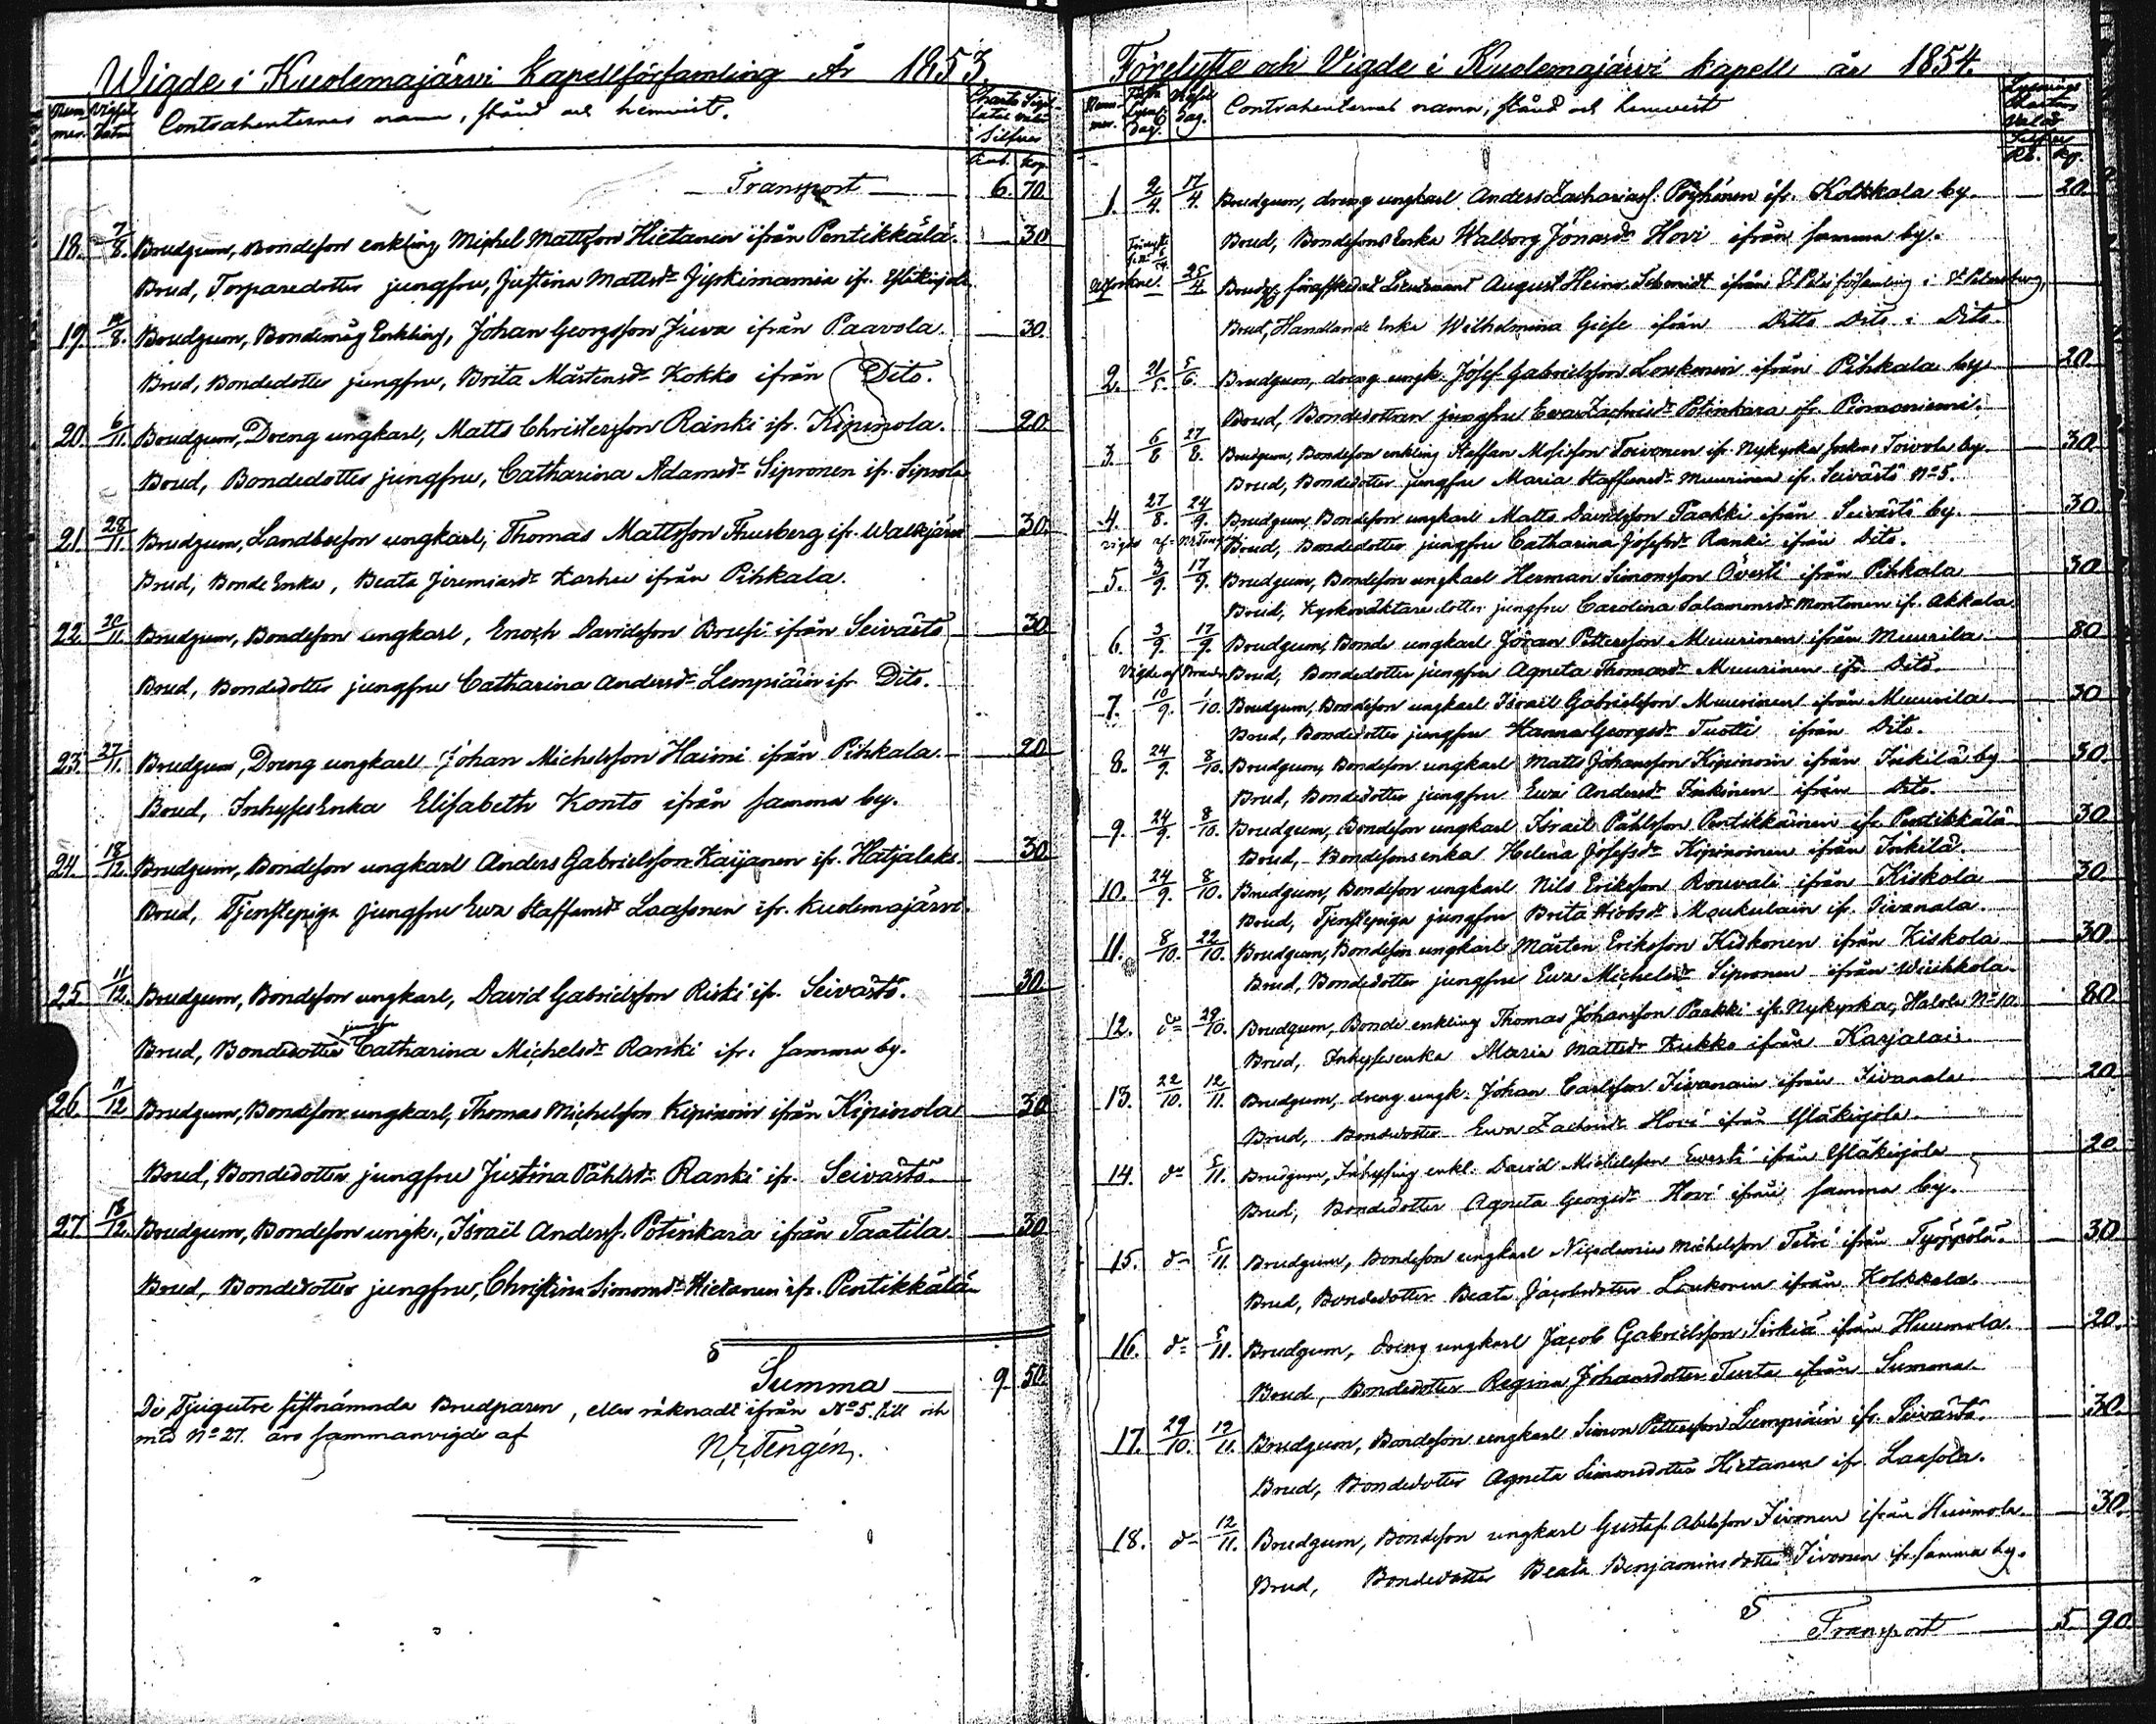 Wigde i Kuolemajärvi Kapellförsamling År 1853.
Num mer. Vigsel Datum Contrahenternas namn, stånd och hemvist. Charta Sigil- latæ värde Silfver
Rub. Kop.
Transport 6. 70.
18. 7/8. Brudgum, Bondeson enkling, Michel Mattsson Hietanen ifrån Pentikkälä. 30
Brud, Torparedotter jungfru, Justina Mattsdr ifr. Yläkirjola.
19. /8. Brudgum, Bondemåg Enkling, Johan Georgsson Juva ifrån Paavola. 30.
Brud, Bondedotter jungfru, Brita Mårtensdr Kokko ifrån Dito.
20. 6/11. Brudgum, Dreng ungkarl, Matts Christersson Ränki ifr. Kipinola. 20
Brud, Bondedotter jungfru, Catharina Adamsdr Sipronen ifr. Siprola
21. 28/11. Brudgum, Landbosson ungkarl, Thomas Mattsson Thusberg ifr. Walkjärvi 30.
Brud, Bonde Enka, Beata Jeremiasdr Karhu ifrån Pihkala.
22. 20/11. Brudgum, Bondeson ungkarl, Enoch Davidsson Brusi ifrån Seivästö 30
Brud, Bondedotter jungfru Catharina Andersdr Lempiäin ifr Dito.
23. 27/11. Brudgum, Dreng ungkarl Johan Michelsson Haimi ifrån Pihkala. 20
Brud, Inhyses Enka Elisabeth Konto ifrån samma by.
24. 18/12. Brudgum, Bondeson ungkarl Anders Gabrielsson Kaijanen ifr. Hatjalaks. 30
Brud, Tjenstepiga jungfru Ewa Staffansdr Laasonen ifr. Kuolemajärvi.
25. 11/12. Brudgum, Bondeson ungkarl, David Gabrielsson Riski ifr. Seivästö. 30.
Brud, Bondedotter jungfru Catharina Michelsdr Ranki ifr. samma by.
26. 11/12 Brudgum, Bondeson ungkarl, Thomas Michelsson Kipinoin ifrån Kipinola 30
Brud, Bondedotter jungfru Justina Påhlsdr Ranki ifr. Seivästö.
27. 18/12. Brudgum, Bondeson ungk., Israël Anderss. Potinkara ifrån Taatila. 30
Brud, Bondedotter jungfru, Christina Simonsdr Hietanen ifr. Pentikkälä
Summa 9. 50.
De Tjugutre sistnämnda Brudparen, eller räknadt ifrån No 5. till och
med No 27. äro sammanvigde af
N. E. Tengén.
Förelyste och Vigde i Kuolemajärvi kapell år 1854.
Num- mer. Första Lysn. Dag. Vigsel Dag. Contrahenternas namn, stånd och hemvist Lysnings Chartans Värde Silfver
Rb. Kp.
1. 2/4. 17/4. Brudgum, dreng ungkarl Anders Zachariass. Pöyhönen ifr. Kolkkala by. 20.
Brud, Bondesons Enka Walborg Jonasdr Hovi ifrån samma by.
25/4 Brudg. förafskedad Lieutenant August Heinr. Schmidt ifrån St Petri församling i St Petersburg,
Brud, Handlande Enka Wilhelmina Giese ifrån Ditto Dito i Dito.
2. 21/5. 5/6. Brudgum, dreng ungk. Josef Gabrielsson Loukonen ifrån Pihkala by 20.
Brud, Bondedottren jungfru Ewa Zachrisdr Potinkara ifr. Pinoniemi.
3. 6/8 27/8. Brudgum, Bondeson enkling Staffan Mosisson Toivonen ifr. Nykyrka sockns Toivola by 30.
Brud, Bondedotter jungfru Maria Staffansdr Muurinen ifr. Seivästö No 5.
4. 27/8. 24/9. Brudgum, Bondeson ungkarl Matts Davidsson Paakki ifrån Seivästö by. 30
vigde af N. E. Tengén Brud, Bondedotter jungfru Catharina Josefsdr Ranki ifrån Dito.
5. 3/9. 17/9. Brudgum, Bondeson ungkarl Herman Simonsson Övesti ifrån Pihkala 30
Brud, Kyrkoväktaredotter jungfru Carolina Salamonsdr Montonen ifr. Akkala.
6. 3/9. 17/9. Brudgum, Bonde ungkarl Jöran Pettersson Muurinen ifrån Muurila 80
Vigde af Brud, Bondedotter jungfru Agneta Thomasdr Muurinen ifr. Dito.
7. 10/9. 1/10. Brudgum, Bondeson ungkarl Israël Gabrielsson Muurinen ifrån Muurila 30
Brud, Bondedotter jungfru Hanna Georgsdr Tuotti ifrån Dito.
8. 24/9. 8/10. Brudgum, Bondeson ungkarl Matts Johansson Kipinoin ifrån Inkilä by 30.
Brud, Bondedotter jungfru Ewa Andersdr Inkinen ifrån Dito.
9. 24/9. 8/10. Brudgum, Bondeson ungkarl Israël Påhlsson Pentikkäinen ifr Pentikkälä 30
Brud, Bondesons enka Helena Josefsdr Kipinoinen ifrån Inkilä.
10. 24/9. 8/10. Brudgum, Bondeson ungkarl Nils Eriksson Rouvali ifrån Kiskola 30.
Brud, Tjenstepiga jungfru Brita Hiobsdr Moukulain ifr. Iivanala.
11. 8/10. 22/10. Brudgum, Bondeson ungkarl Mårten Eriksson Kiskonen ifrån Kiskola 30.
Brud, Bondedotter jungfru Ewa Michelsdr Sipronen ifrån Wiuhkola.
12. do 29/10. Brudgum, Bonde enkling Thomas Johansson Paakki ifr. Nykyrka, Halola No 10. 80.
Brud, Inhysesenka Maria Mattsdr Kukko ifrån Karjalais.
13. 22/10. 12/11. Brudgum, dreng ungk. Johan Carlsson Iivanain ifrån Iivanala 20
Brud, Bondedotter Ewa Zachrisdr Hovi ifrån Yläkirjola.
14. do 5/11. Brudgum, Inhysing enkl. David Michelsson Evesti ifrån Yläkirjola 20.
Brud, Bondedotter Agneta Georgsdr Hovi ifrån samma by.
15. do 5/11. Brudgum, Bondeson ungkarl Nicodemus Michelsson Tetri ifrån Työppölä. 30
Brud, Bondedotter Beata Jacobsdotter Loukonen ifrån Kolkkala.
16. do 5/11. Brudgum, dreng ungkarl Jacob Gabrielsson Sirkiä ifrån Huumola. 20.
Brud, Bondedotter Regina Johansdotter Turta ifrån Summa
17. 29/10. 19/11. Brudgum, Bondeson ungkarl Simon Pettersson Lempiäin ifr. Seivästö. 30.
Brud, Bondedotter Agneta Simonsdotter Hietanen ifr. Laasola.
18. do 12/11. Brudgum, Bondeson ungkarl Gustaf Abelsson Iivonen ifrån Huumola. 30.
Brud, Bondedotter Beata Benjaminsdotter Iivonen ifr. samma by.
Transport 5. 90.